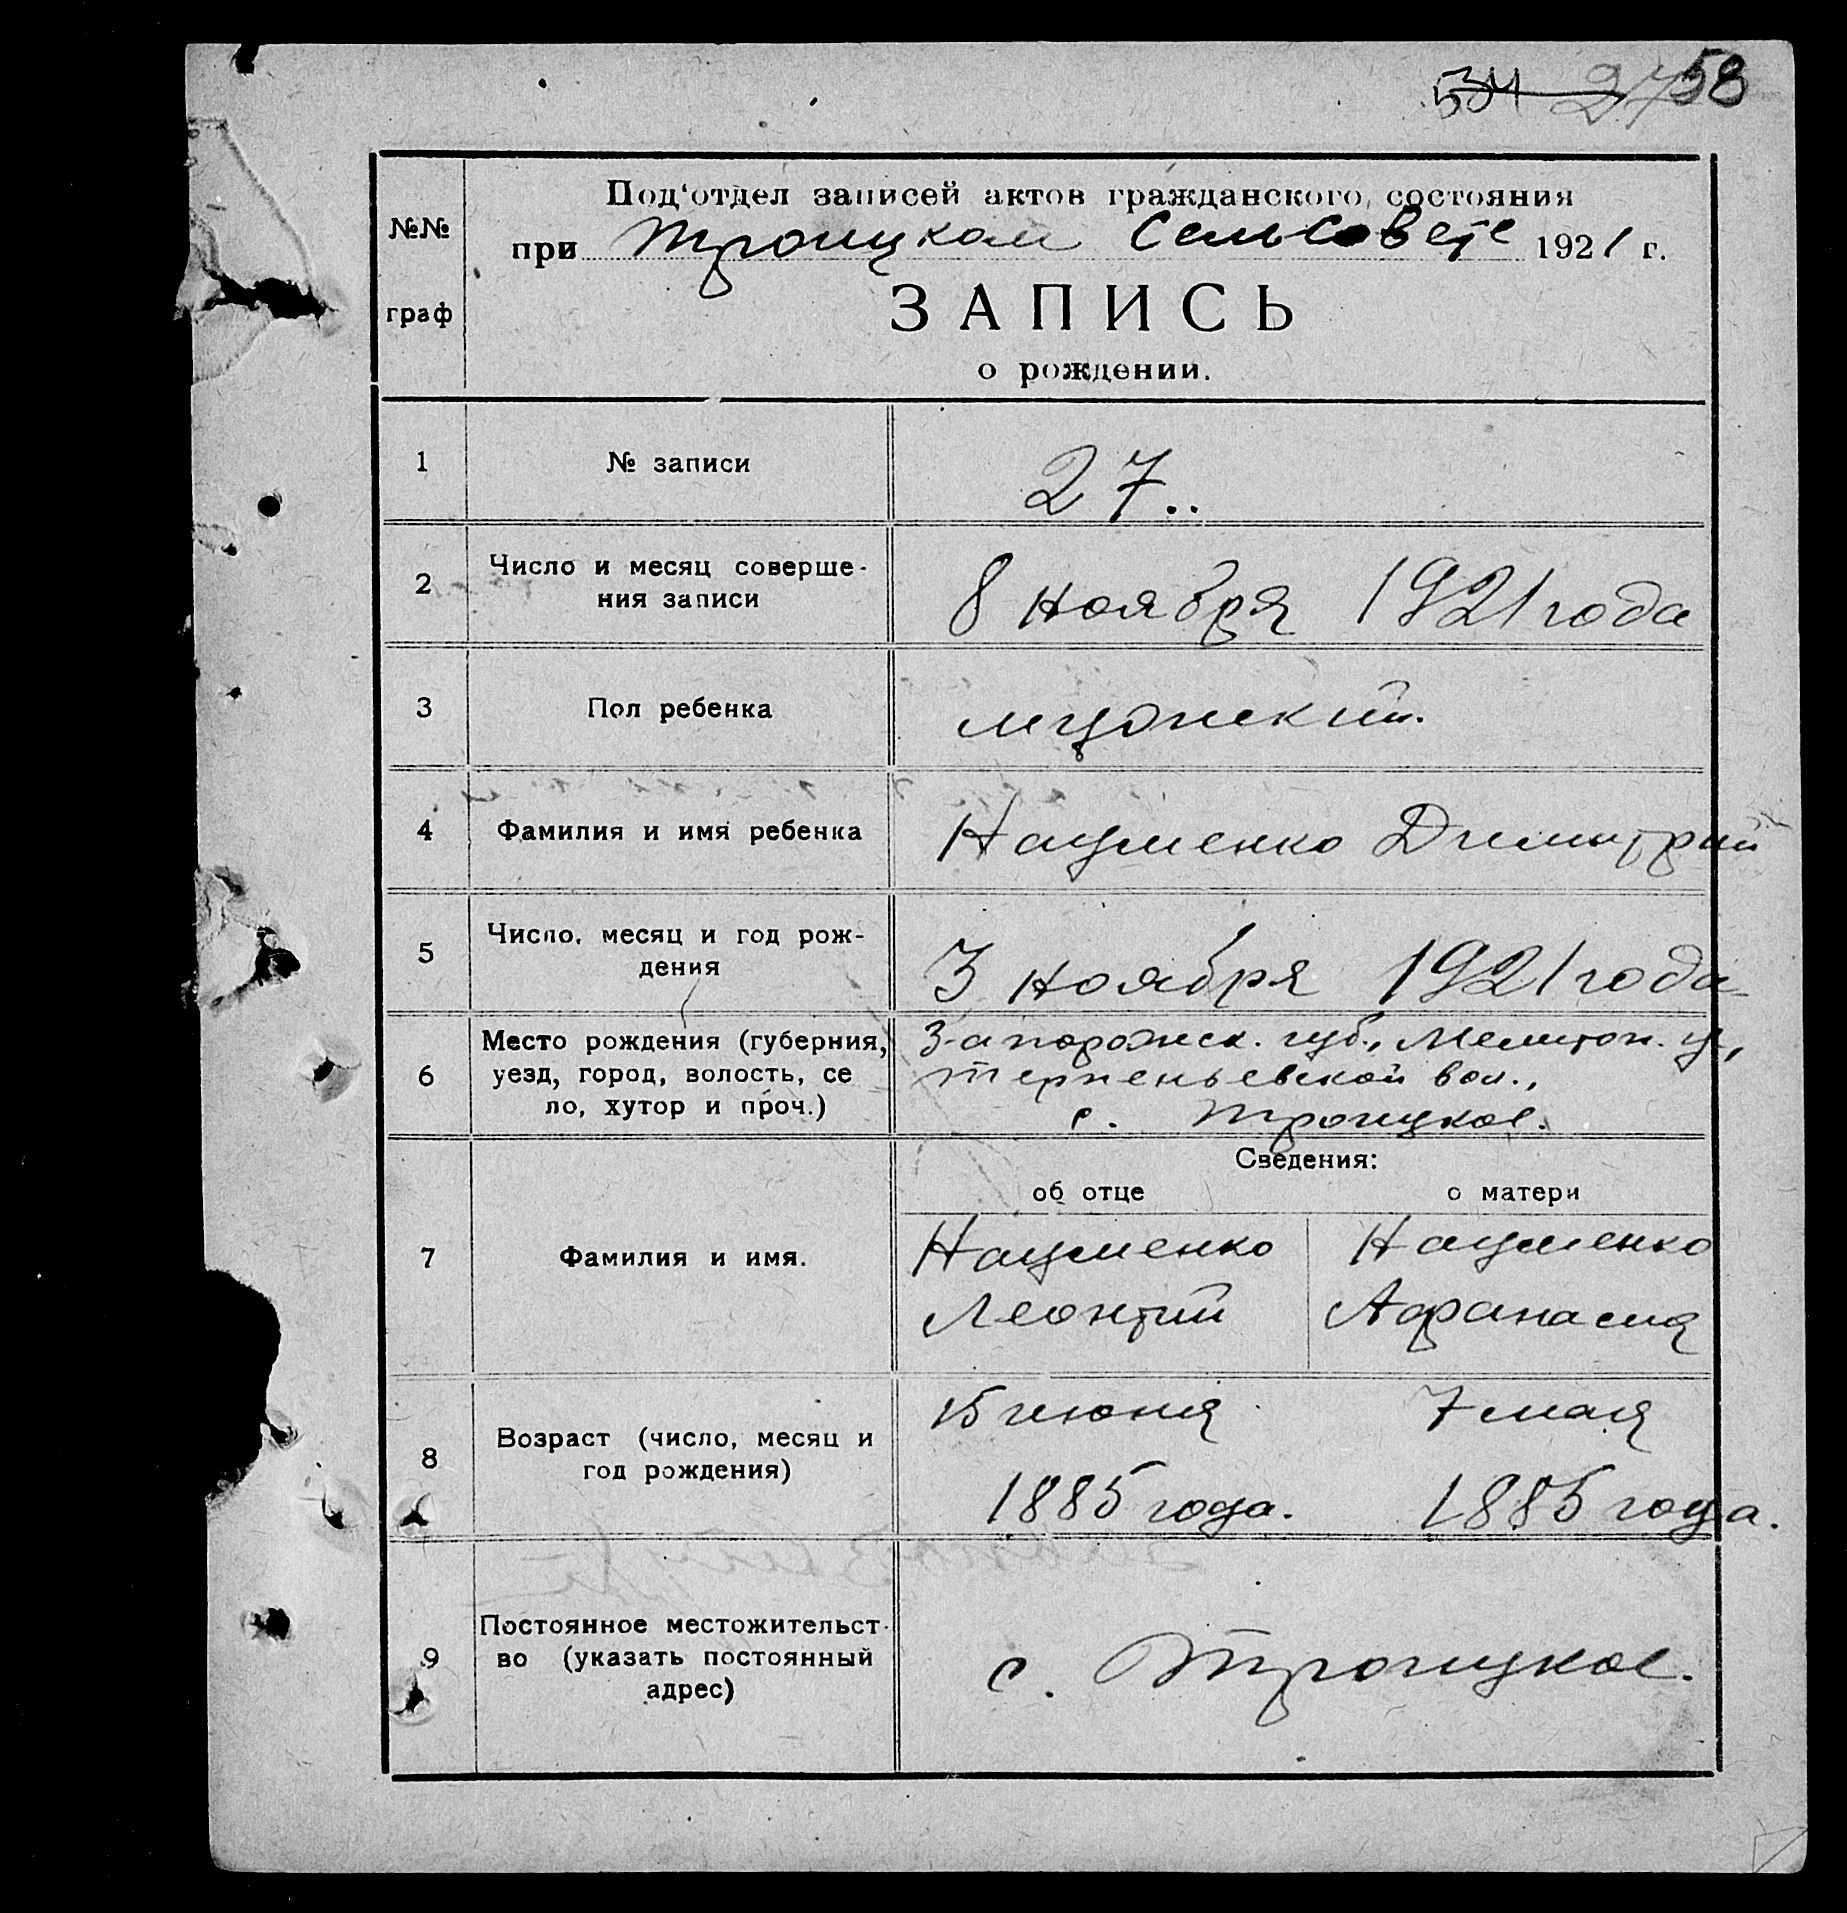 534 27 58
Под‘отдел записей актов гражданского состояния
№№
при Троицком Сельсовете 1921 г.
граф
ЗАПИСЬ
о рождении.
1 № записи 27..
2 Число и месяц соверше-
ния записи 8 ноября 1921 года
3 Пол ребенка мужский.
4 Фамилия и имя ребенка Науменко Димитрий
5 Число, месяц и год рож-
дения 3 ноября 1921 года
6 Место рождения (губерния, Запорожск. губ., Мелитоп. у.,
уезд, город, волость, се Терпеньевской вол.,
ло, хутор и проч.) с. Троицкое.
Сведения:
об отце о матери
7 Фамилия и имя. Науменко Науменко
Леонтий Афанасия
8 Возраст (число, месяц и 15 июня 7 мая
год рождения) 1885 года. 1885 года.
9 Постоянное местожительст-
во (указать постоянный с. Троицкое.
адрес)